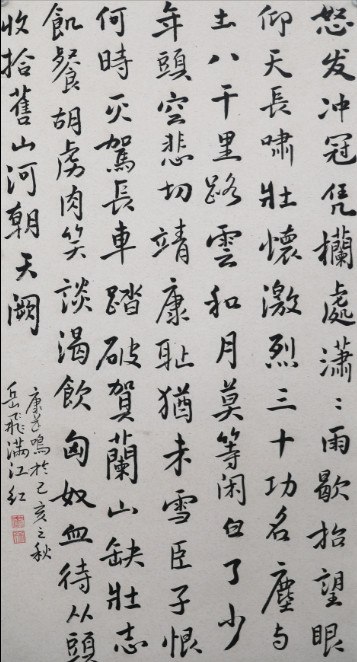 怒发冲冠凭欄處瀟〻雨歇抬望眼
仰天長嘯壯懷激烈三十功名塵与
土八千里路雲和月莫等闲白了少
年頭空悲切靖康耻猶未雪臣子恨
何時灭駕長車踏破賀蘭山缺壯志
飢餐胡虜肉笑談渴飲匈奴血待从頭
收拾舊山河朝天闕
岳飛满江红
康鳴於己亥之秋